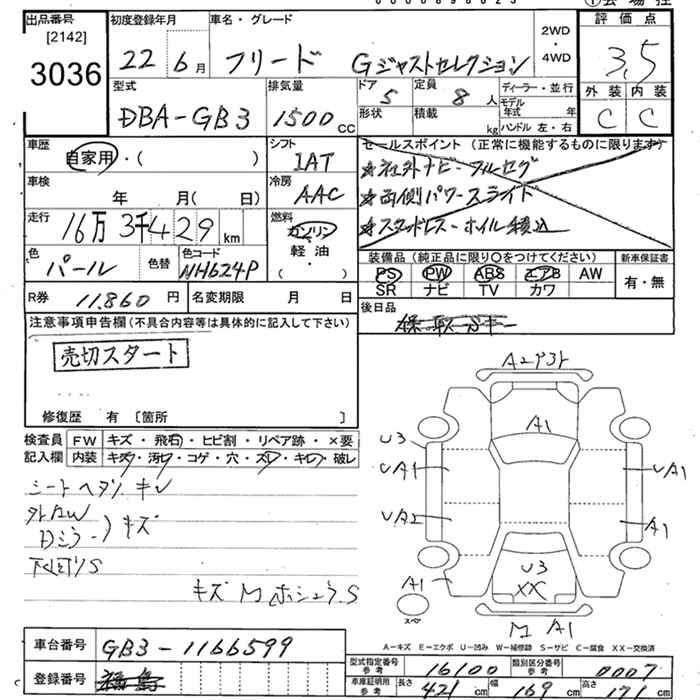 出品番号
[2142]
3036
初度登録年月
22年6月
車名・グレード
フリード Gジャストセレクション
2WD
・
4WD
評価点
3.5
外装 内装
C C
型式
DBA-GB3
排気量
1500 cc
ドア
5
形状
定員
8人
積載
kg
ディーラー・並行
モデル年式 年
ハンドル 左・右
車歴
自家用・( )
シフト
IAT
車検
年 月( 日)
冷房
AAC
走行
16万3千429 km
燃料
ガソリン
軽油
・( )
色
パール
色替
色コード
NH624P
R券
11,860円
名変期限 月 日
セールスポイント (正常に機能するものに限ります)
★社外ナビ・フルセグ
★両側パワースライド
★スタッドレス・ホイル積込
装備品 (純正品に限り○をつけてください)
PS PW ABS エアB AW
SR ナビ TV カワ
新車保証書
有・無
後日品
注意事項申告欄(不具合内容等は具体的に記入して下さい)
売切スタート
修復歴 有 〔箇所 〕
検査員記入欄
FW キズ・飛石・ヒビ割・リペア跡・×要
内装 キズ・汚れ・コゲ・穴・スレ・キレ・破レ
シートヘタリ キレ
外AW
Dミラー)キズ
下回りS
キズ M ホシュウ.S
A2
A1
U3
UA1
UA1
UA2
A1
A1
U3
XX
スペア
M A1
A=キズ E=エクボ U=凹み W=補修跡 S=サビ C=腐食 XX=交換済
車台番号
GB3-1166599
登録番号
福島
型式指定番号
参考
16100
類別区分番号
参考
0007
車庫証明用
参考
長さ 421 cm 幅 169 cm 高さ 171 cm